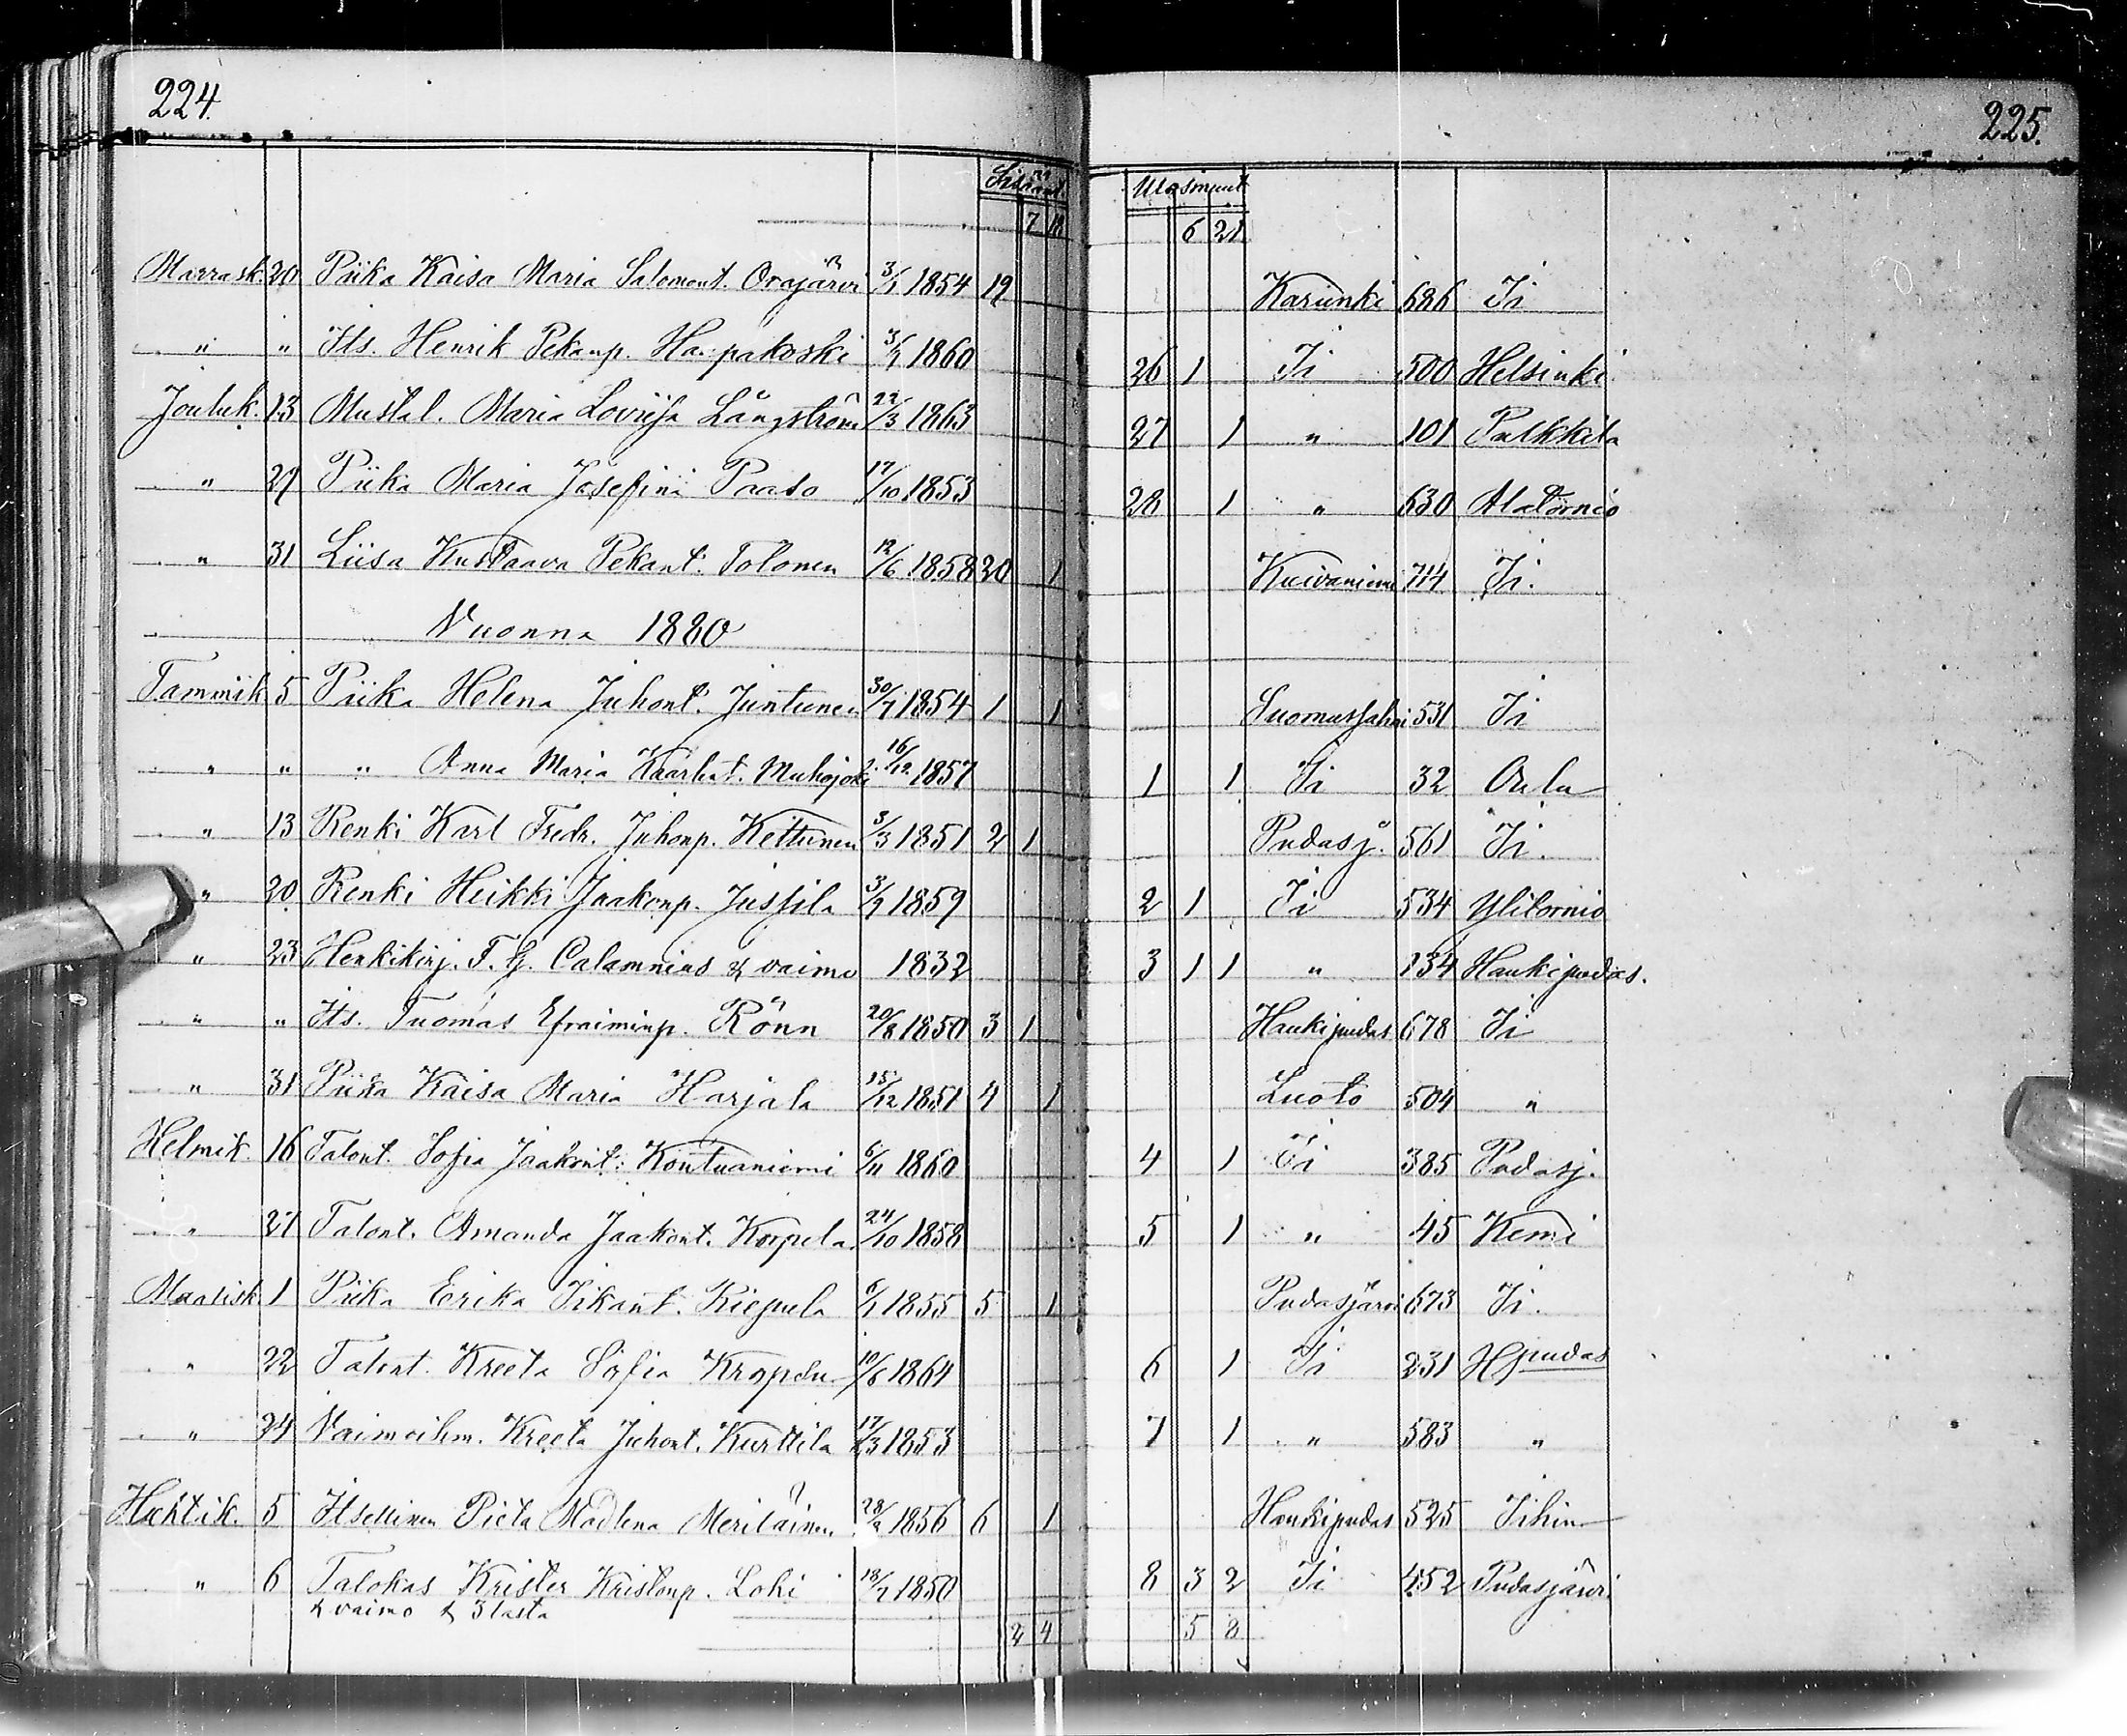 224.
225.
Sisäänt. Ulosmuut
7 18 6 21
Marrask. 20 Piika Kaisa Maria Salomont. Orajärvi 3/1 1854 19 Karunki 686 Ii
" " Its. Henrik Pekanp. Haapakoski 1860 26 1 Ii 500 Helsinki
Jouluk. 13 Mustal. Maria Lovisa Långström 22/3 1863 27 1 " 101 Pulkkila
" 29 Piika Maria Josefina Paaso 17/10 1853 28 1 " 630 Alatornio
" 31 Liisa Kustaava Pekant. Tolonen 12/6 1858 20 1 Kuivaniemi 714 Ii.
Vuonna 1880
Tammik 5 Piika Helena Juhont. Juntunen 30/7 1854 1 1 Suomussalmi 531 Ii
" " " Anna Maria Kaarlent. Muhojoki 16/12 1857 1 1 Ii 32 Oulu
" 13 Renki Karl Fredr. Juhonp. Kettunen 3/3 1851 2 1 Pudasj. 561 Ii.
" 20 Renki Heikki Jaakonp. Jussila 1859 2 1 Ii 534 Ylitornio
" 23 Henkikirj. F. G. Calamnius & vaimo 1832 3 1 1 " 134 Haukipudas.
" " Its. Tuomas Efraiminp. Rönn 20/8 1850 3 1 Haukipudas 678 Ii
" 31 Piika Kaisa Maria Harjala 15/12 1851 4 1 Luoto 504 "
Helmik. 16 Talont. Sofia Jaakont. Kontuaniemi 6/11 1860 4 1 Ii 385 Pudasj.
" 27 Talont. Amanda Jaakont. Korpela 24/10 1858 5 1 " 45 Kemi
Maalisk. 1 Piika Erika Iikant. Riepula 6/1 1855 5 1 Pudasjärvi 673 Ii.
" 22 Talont. Kreeta Sofia 10/6 1864 6 1 Ii 231 Hpudas
" 24 Vaimoihm. Kreeta Juhont. Kurttila 17/3 1853 7 1 " 583 "
Huhtik. 5 Itsellinen Pieta Madlena Meriläinen 1856 6 1 Haukipudas 525 Iihin
" 6 Talokas Krister Kristonp. Lohi 18/7 1850 8 3 2 Ii 452 Pudasjärvi
& vaimo & 3 lasta
2 4 5 8